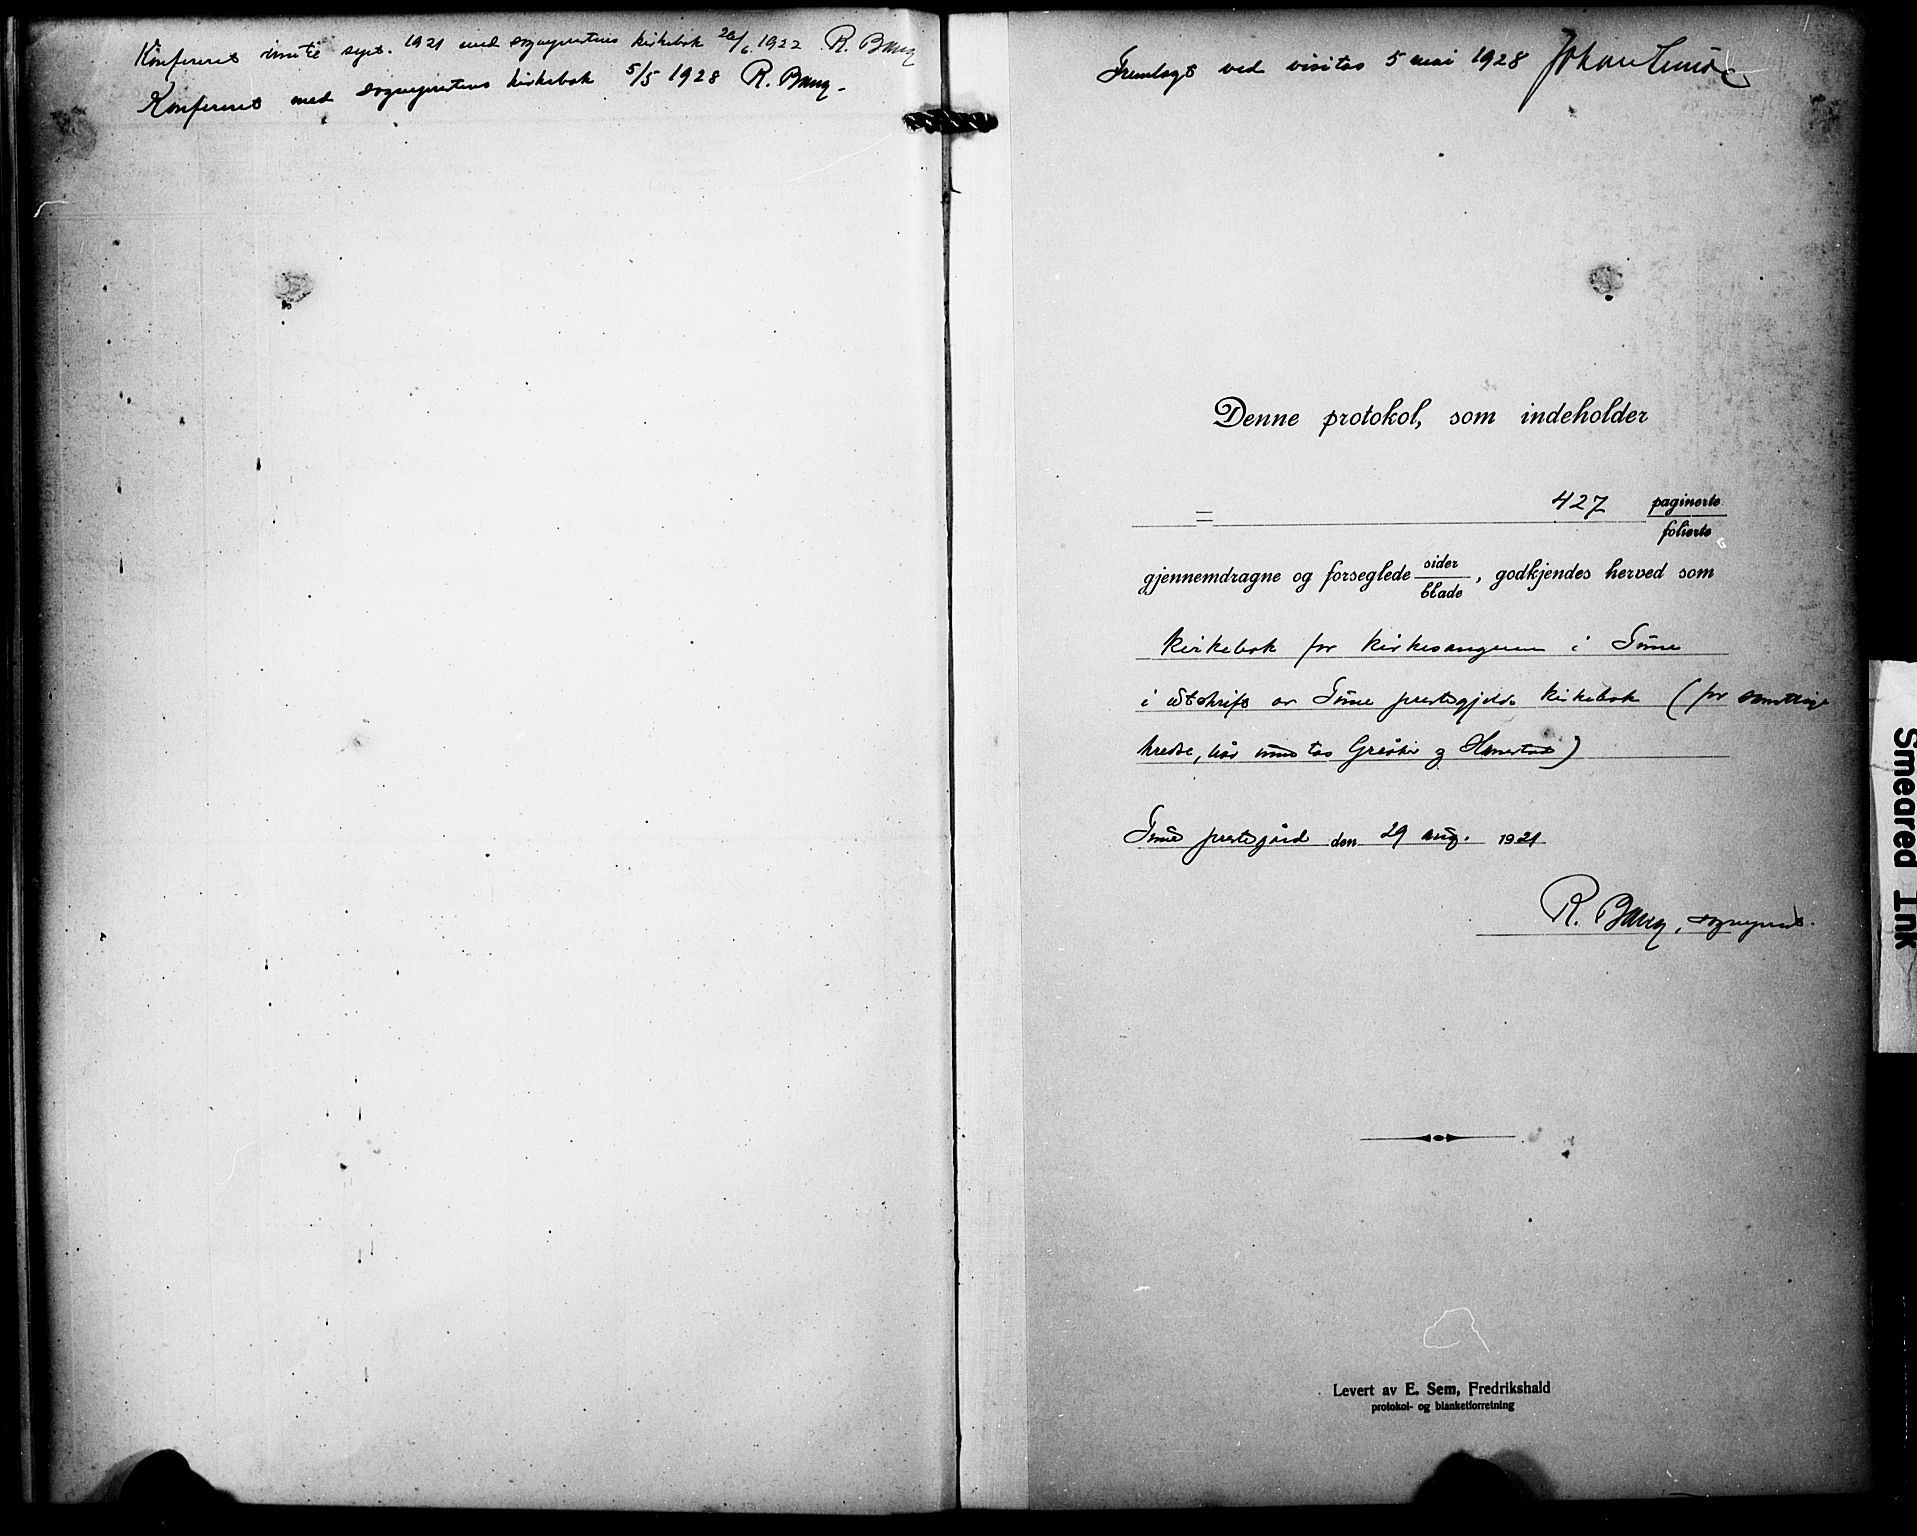 Konfereret inntil sept. 1921 med sogneprestens kirkebok 26/6 1922 R. Bang
Konfereret med sogneprestens kirkebok 5/5 1928 R. Bang.
Fremlagt ved visitas 5 mai 1928 Johan Lunde
Denne protokol, som indeholder
= 427 paginerte
folierte
gjennemdragne og forseglede sider
blade, godkjendes herved som
kirkebok for kirkesangeren i Tune
i utskrift av Tune prestegjelds kirkebok (for samtlige
kredse, Greåker og
Tune prestegård den 29 aug. 1921
R. Bang, sogneprest.
Levert av E. Sem, Fredrikshald
protokol- og blanketforretning
Smeared Ink